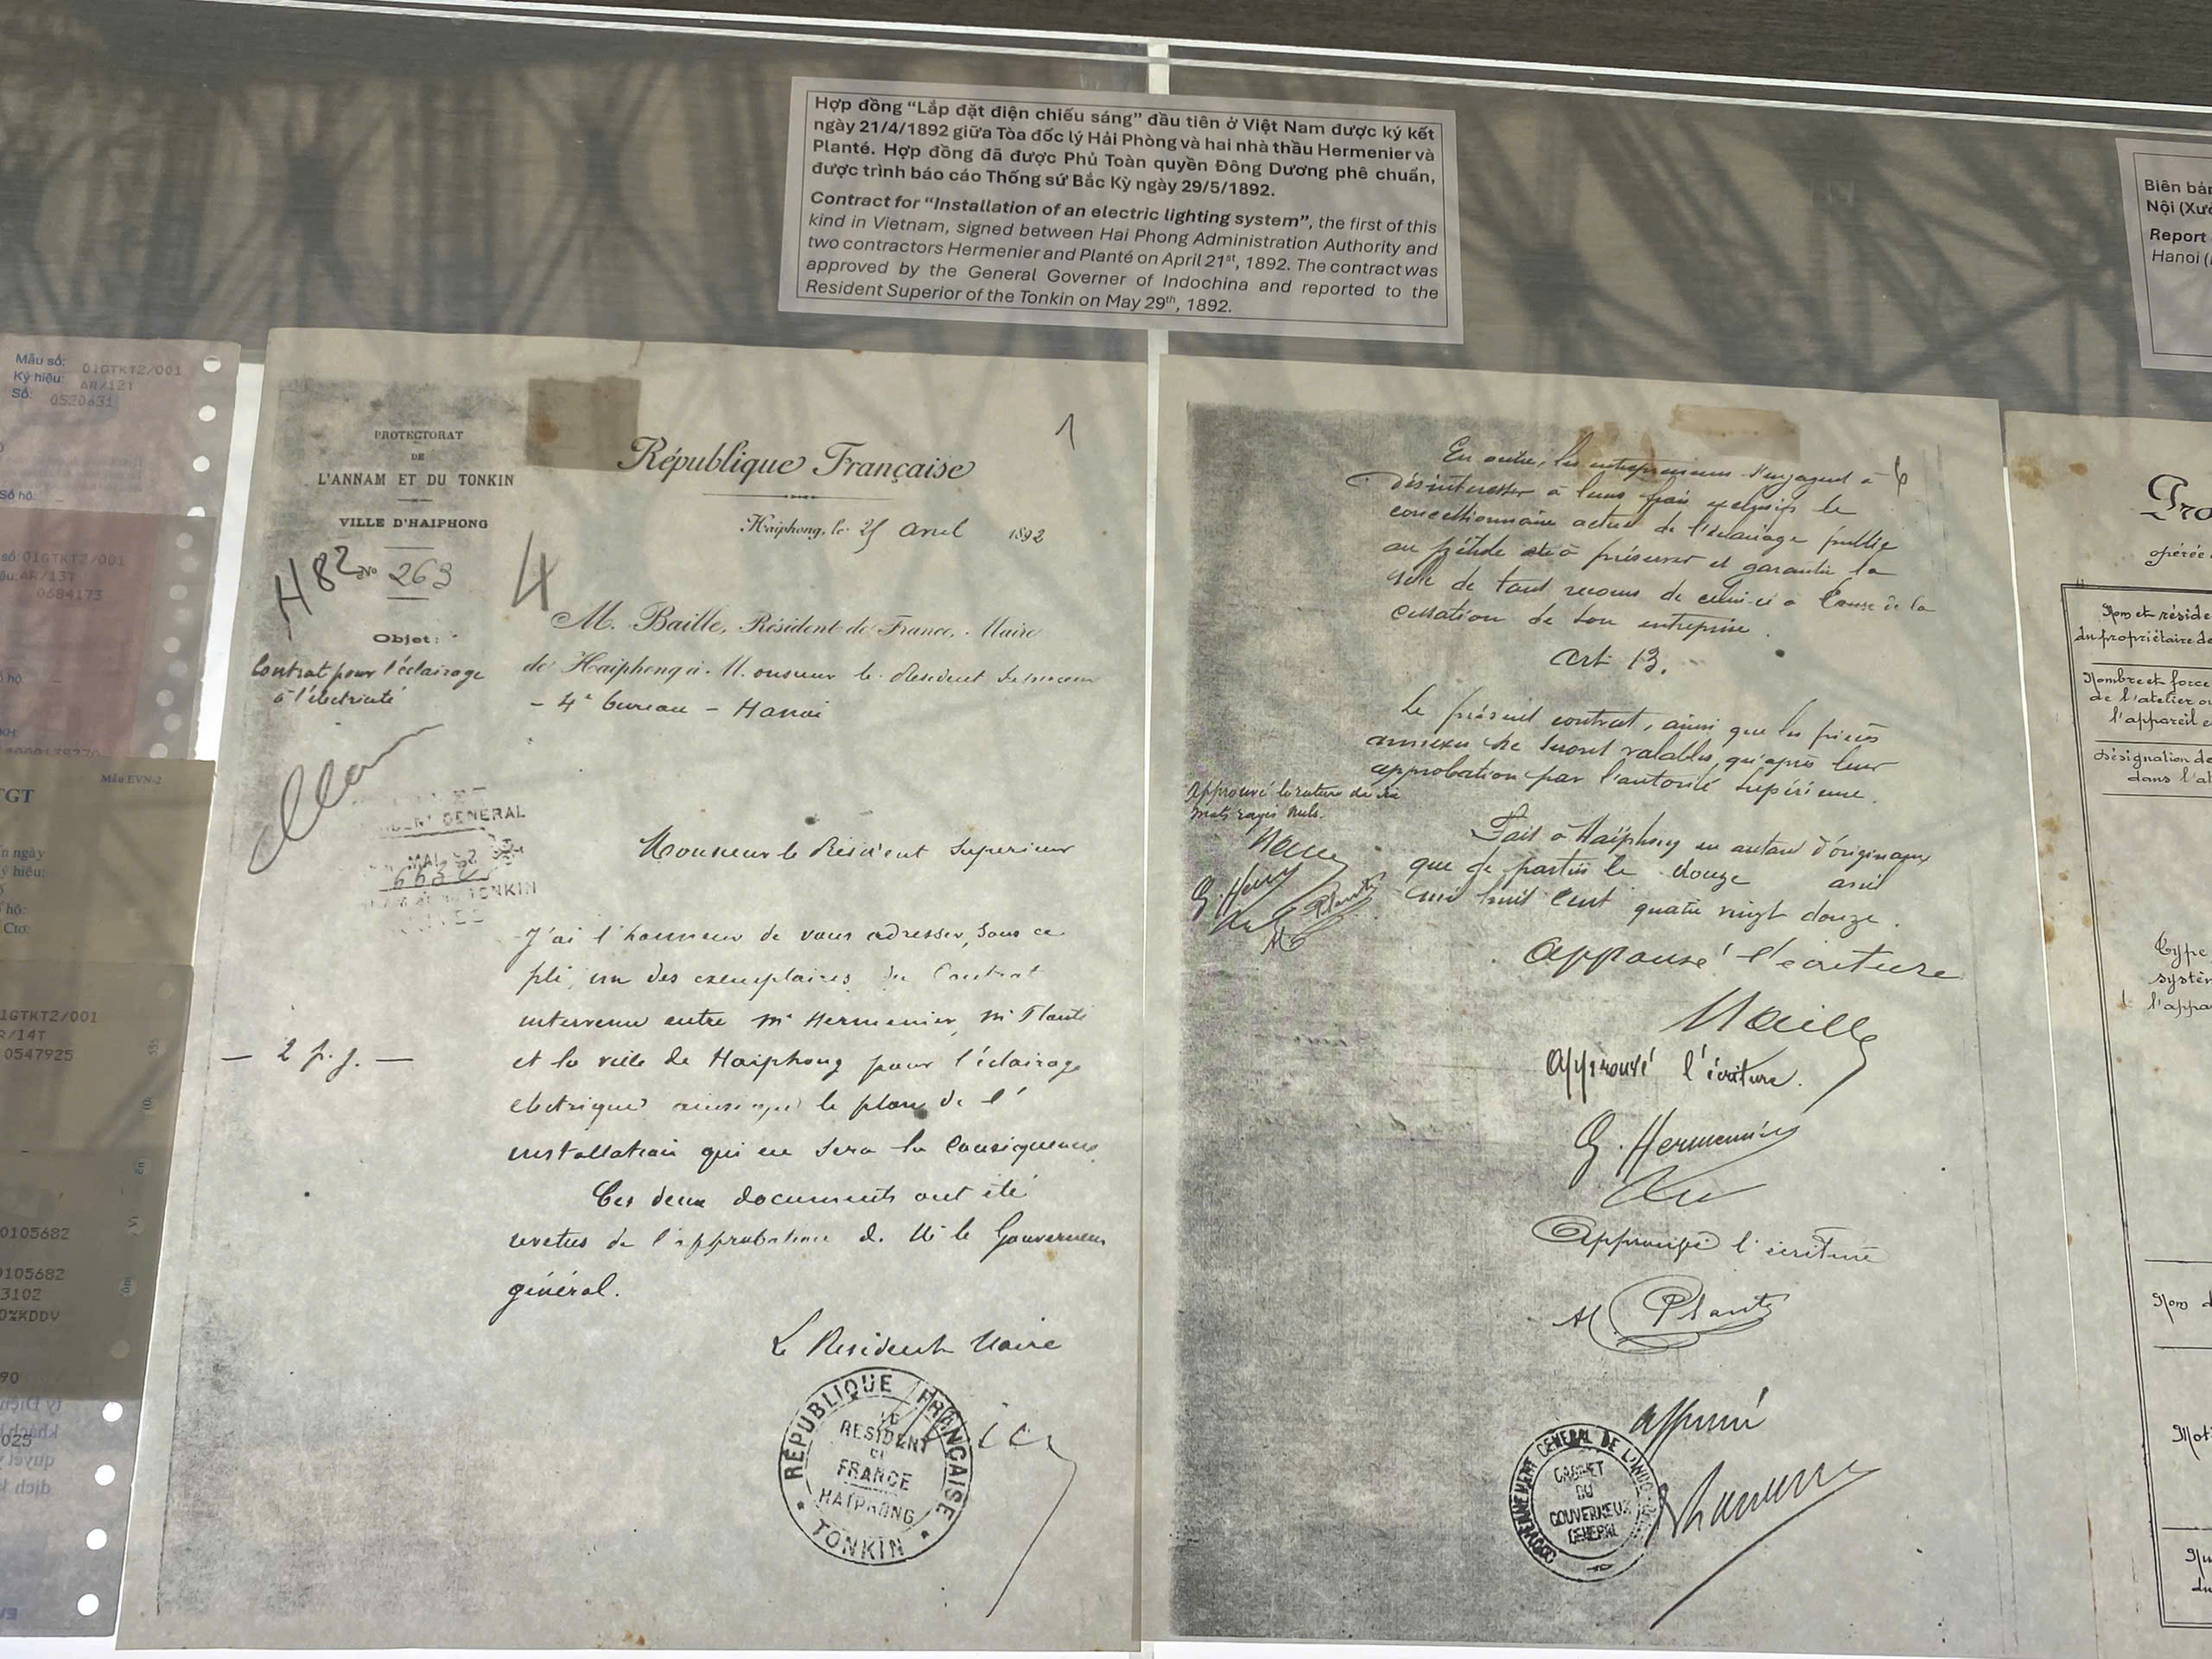 Hợp đồng “Lắp đặt điện chiếu sáng” đầu tiên ở Việt Nam được ký kết
ngày 21/4/1892 giữa Tòa đốc lý Hải Phòng và hai nhà thầu Hermenier và
Planté. Hợp đồng đã được Phủ Toàn quyền Đông Dương phê chuẩn,
được trình báo cáo Thống sứ Bắc Kỳ ngày 29/5/1892.
Contract for “Installation of an electric lighting system”, the first of this
kind in Vietnam, signed between Hai Phong Administration Authority and
two contractors Hermenier and Planté on April 21st, 1892. The contract was
approved by the General Governer of Indochina and reported to the
Resident Superior of the Tonkin on May 29th, 1892.
Biên bản
Nội (Xưở
Report
Hanoi (
Mẫu số: 01GTKT2/001
Ký hiệu: AR/12T
Số: 0520631
Số hộ:
số: 01GTKT2/001
AR/13T
0684173
Mẫu EVN-2
TGT
1GTKT2/001
R/14T
0547925
0105682
0105682
3102
0%KDDV
90
025
PROTECTORAT
DE
L'ANNAM ET DU TONKIN
VILLE D'HAIPHONG
H82 No 263
Objet:
Contrat pour l'éclairage
à l'électricité
4
1
République Française
Haiphong, le 25 avril 1892
M. Baille, Résident de France, Maire
de Haiphong à Monsieur le Résident Supérieur
- 4e bureau - Hanoi
MAI 92
TONKIN
Monsieur le Résident Supérieur
J'ai l'honneur de vous adresser, sous ce
pli, un des exemplaires du Contrat
intervenu entre Mr Hermenier, Mr Planté
et la ville de Haiphong pour l'éclairage
électrique ainsi que le plan de l'
installation qui en sera la conséquence.
— 2 p.j. —
Ces deux documents ont été
revêtus de l'approbation de M. le Gouverneur
général.
Le Résident Maire
RÉPUBLIQUE FRANÇAISE
LE
RESIDENT
DE
FRANCE
HAÏPHONG
TONKIN
En outre, les entrepreneurs s'engagent à 6
désintéresser à leurs frais exclusifs le
concessionnaire actuel de l'éclairage public
au pétrole et à préserver et garantir la
ville de tout recours de celui-ci à cause de la
cessation de son entreprise.
Art 13.
Le présent contrat, ainsi que les pièces
annexes ne seront valables, qu'après leur
approbation par l'autorité supérieure.
Approuvé la rature de six
mots rayés nuls.
Fait à Haïphong en autant d'originaux
que de parties le douze avril
mil huit cent quatre vingt douze.
Approuvé l'écriture
Baille
Approuvé l'écriture.
G. Hermenier
Approuvé l'écriture
Planté
approuvé
GOUVERNEMENT GENERAL DE L'INDO-
CABINET
DU
GOUVERNEUR
GENERAL
Pro
opérée
Nom et réside
du propriétaire de
Nombre et force
de l'atelier ou
l'appareil e
Désignation de
dans l'at
Type
systèm
l'appa
Nom d
Mot
Nu
du